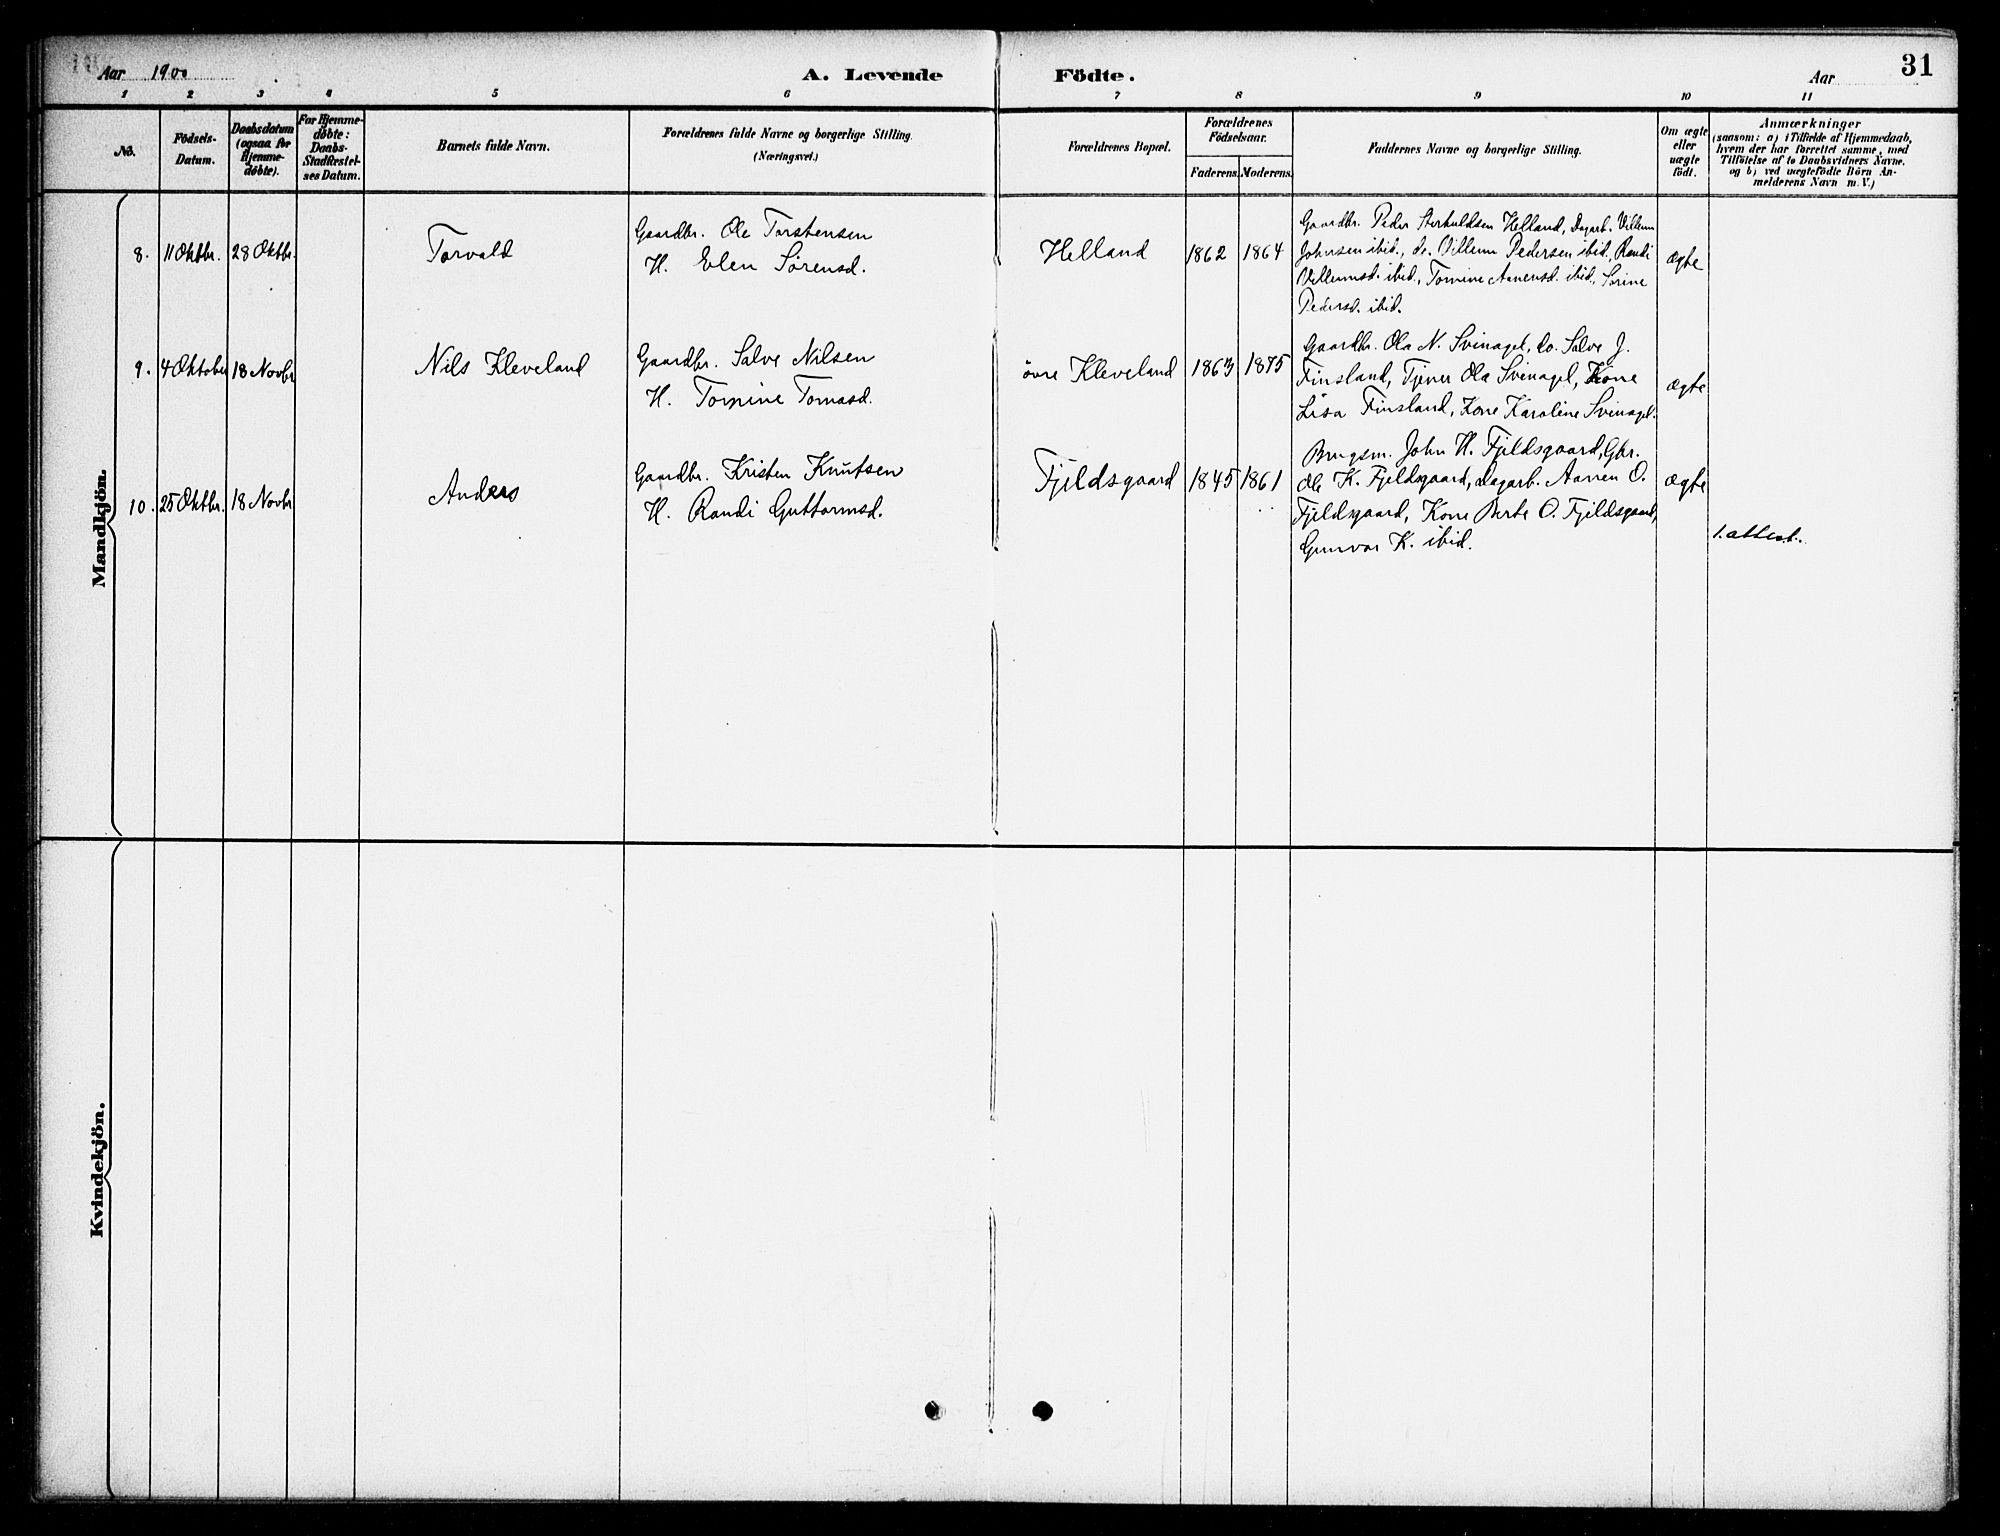 Aar 1900
A. Levende Födte.
Aar
31
1 2 3 4 5 6 7 8 9 10 11
No.
Födsels-
Datum.
Daabsdatum
(ogsaa for
Hjemme-
døbte).
For Hjemme-
døbte:
Daabs-
Stadfæstel-
ses Datum.
Barnets fulde Navn.
Forældrenes fulde Navne og borgerlige Stilling.
(Næringsvei.)
Forældrenes Bopæl.
Forældrenes
Födselsaar.
Faderens. Moderens.
Faddernes Navne og borgerlige Stilling.
Om ægte
eller
uægte
födt.
Anmærkninger
(saasom: a) i Tilfælde af Hjemmedaab,
hvem der har forrettet samme, med
Tilföielse af to Daabsvidners Navne.
og b) ved uægtefödte Börn An-
melderens Navn m. V.)
Mandkjön.
8. 11 Oktbr. 28 Oktbr. Torvald
Gaardbr. Ole Torstensen
H. Elen Sørensd.
Helland 1862 1864
Gaardbr. Peder Helland, Dagarb. Villum
Johnsen ibid., do. Villum Pedersen ibid, Randi
Villumsd. ibid., Tomine Aanensd. ibid., Sorine
Pedersd. ibid.
ægte
9. 4 Oktober 18 Novbr Nils Kleveland
Gaardbr. Salve Nilsen
H. Tomine Tomasd.
övre Kleveland 1863 1875
Gaardbr. Ola N. Svinagel, do. Salve J.
Finsland, Tjener Ola Svinagel, Kone
Lisa Finsland, Kone Karoline Svinagel.
ægte
10. 25 Oktbr. 18 Novbr Anders
Gaardbr. Kristen Knutsen
H. Randi Guttormsd.
Fjeldsgaard 1845 1861
Brugsm. John H. Fjeldsgaard, Gbr.
Ole K. Fjeldsgaard, Dagarb. Aanen O.
Fjeldsgaard, Kone Berte O. Fjeldsgaard,
Gunvor K. ibid.
ægte
1. attest.
Kvindekjön.